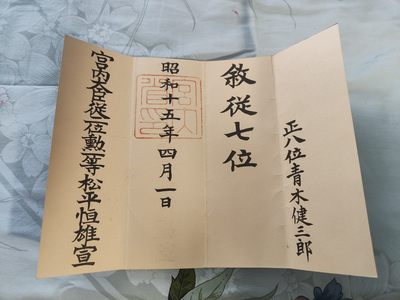 正八位青木健三郎
敘從七位
昭和十五年四月一日
宮内大臣從二位勲一等松平恒雄宣